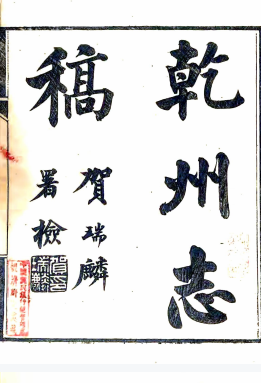 乾州志
稿
賀瑞麟
署檢